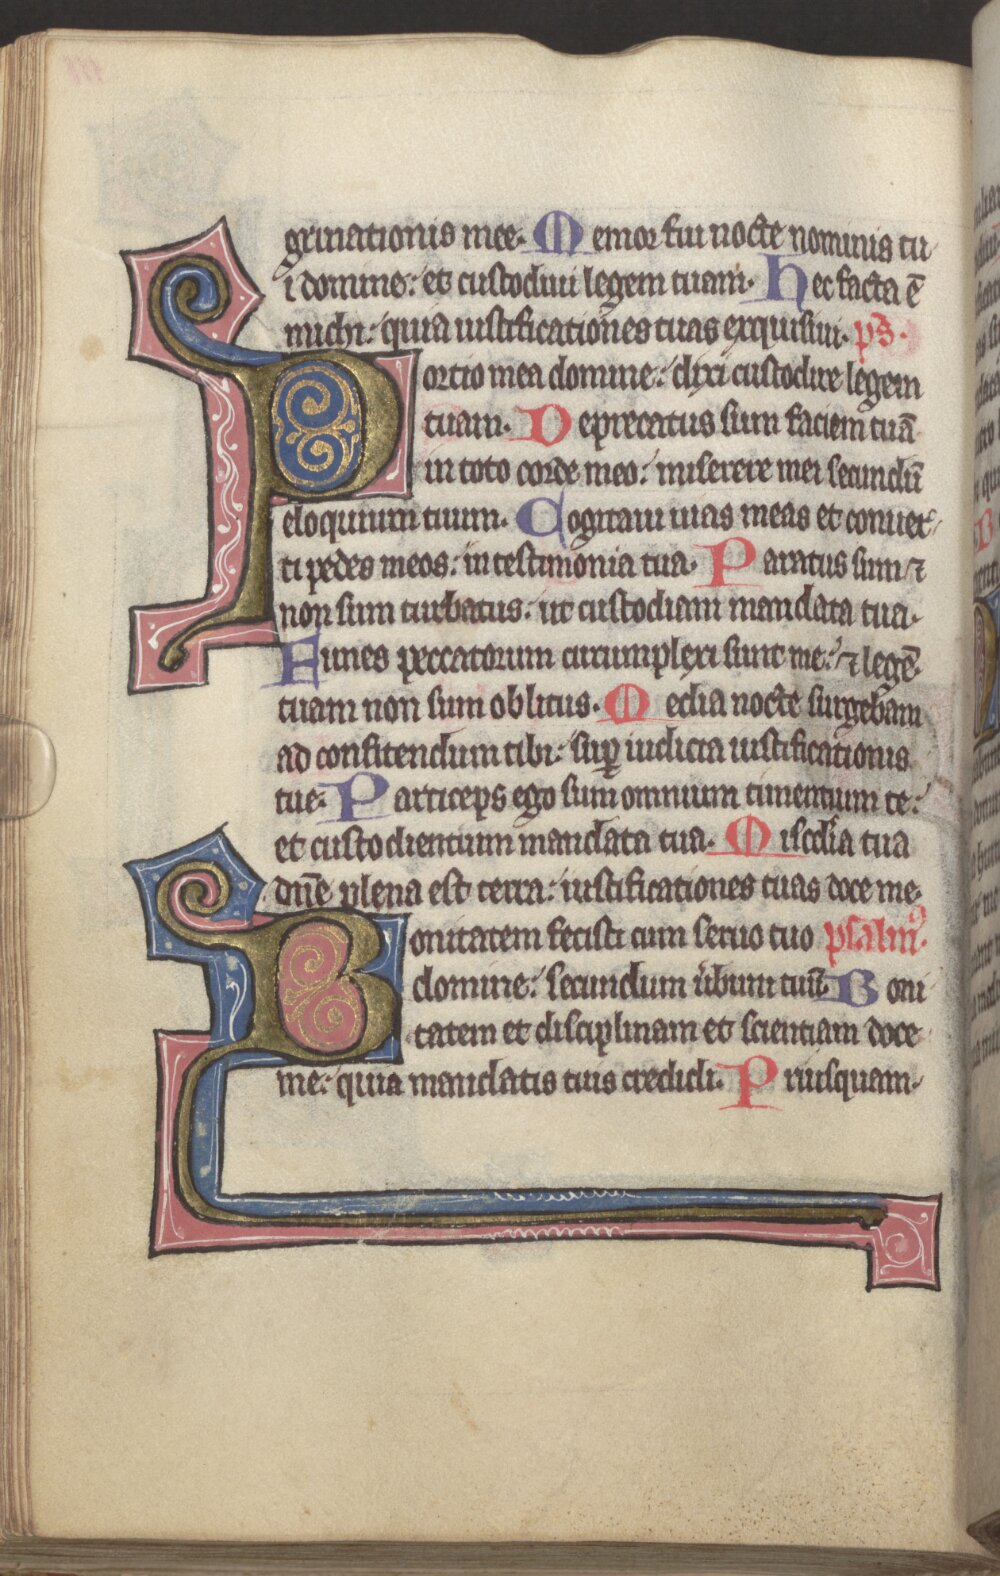 grinationis mee. Memor fui nocte nominis tu
i domine: et custodiui legem tuam. Hec facta ē
michi: quia iustificationes tuas exquisiui. ps̄.
Portio mea domine: dixi custodire legem
tuam. Deprecatus sum faciem tuā
in toto corde meo: miserere mei secundū
eloquium tuum. Cogitaui uias meas et conuer
ti pedes meos: in testimonia tua. Paratus sum ⁊
non sum turbatus: ut custodiam mandata tua.
Funes peccatorum circumplexi sunt me: ⁊ legē
tuam non sum oblitus. Media nocte surgebam
ad confitendum tibi: sup̲ iudicia iustificationis
tue. Particeps ego sum omnium timentium te:
et custodientium mandata tua. Miscd̓ia tua
dn̄e plena est terra: iustificationes tuas doce me.
Bonitatem fecisti cum seruo tuo psalmꝰ.
domine: secundum u̓bum tuū. Boni
tatem et disciplinam et scientiam doce
me: quia mandatis tuis credidi. Priusquam